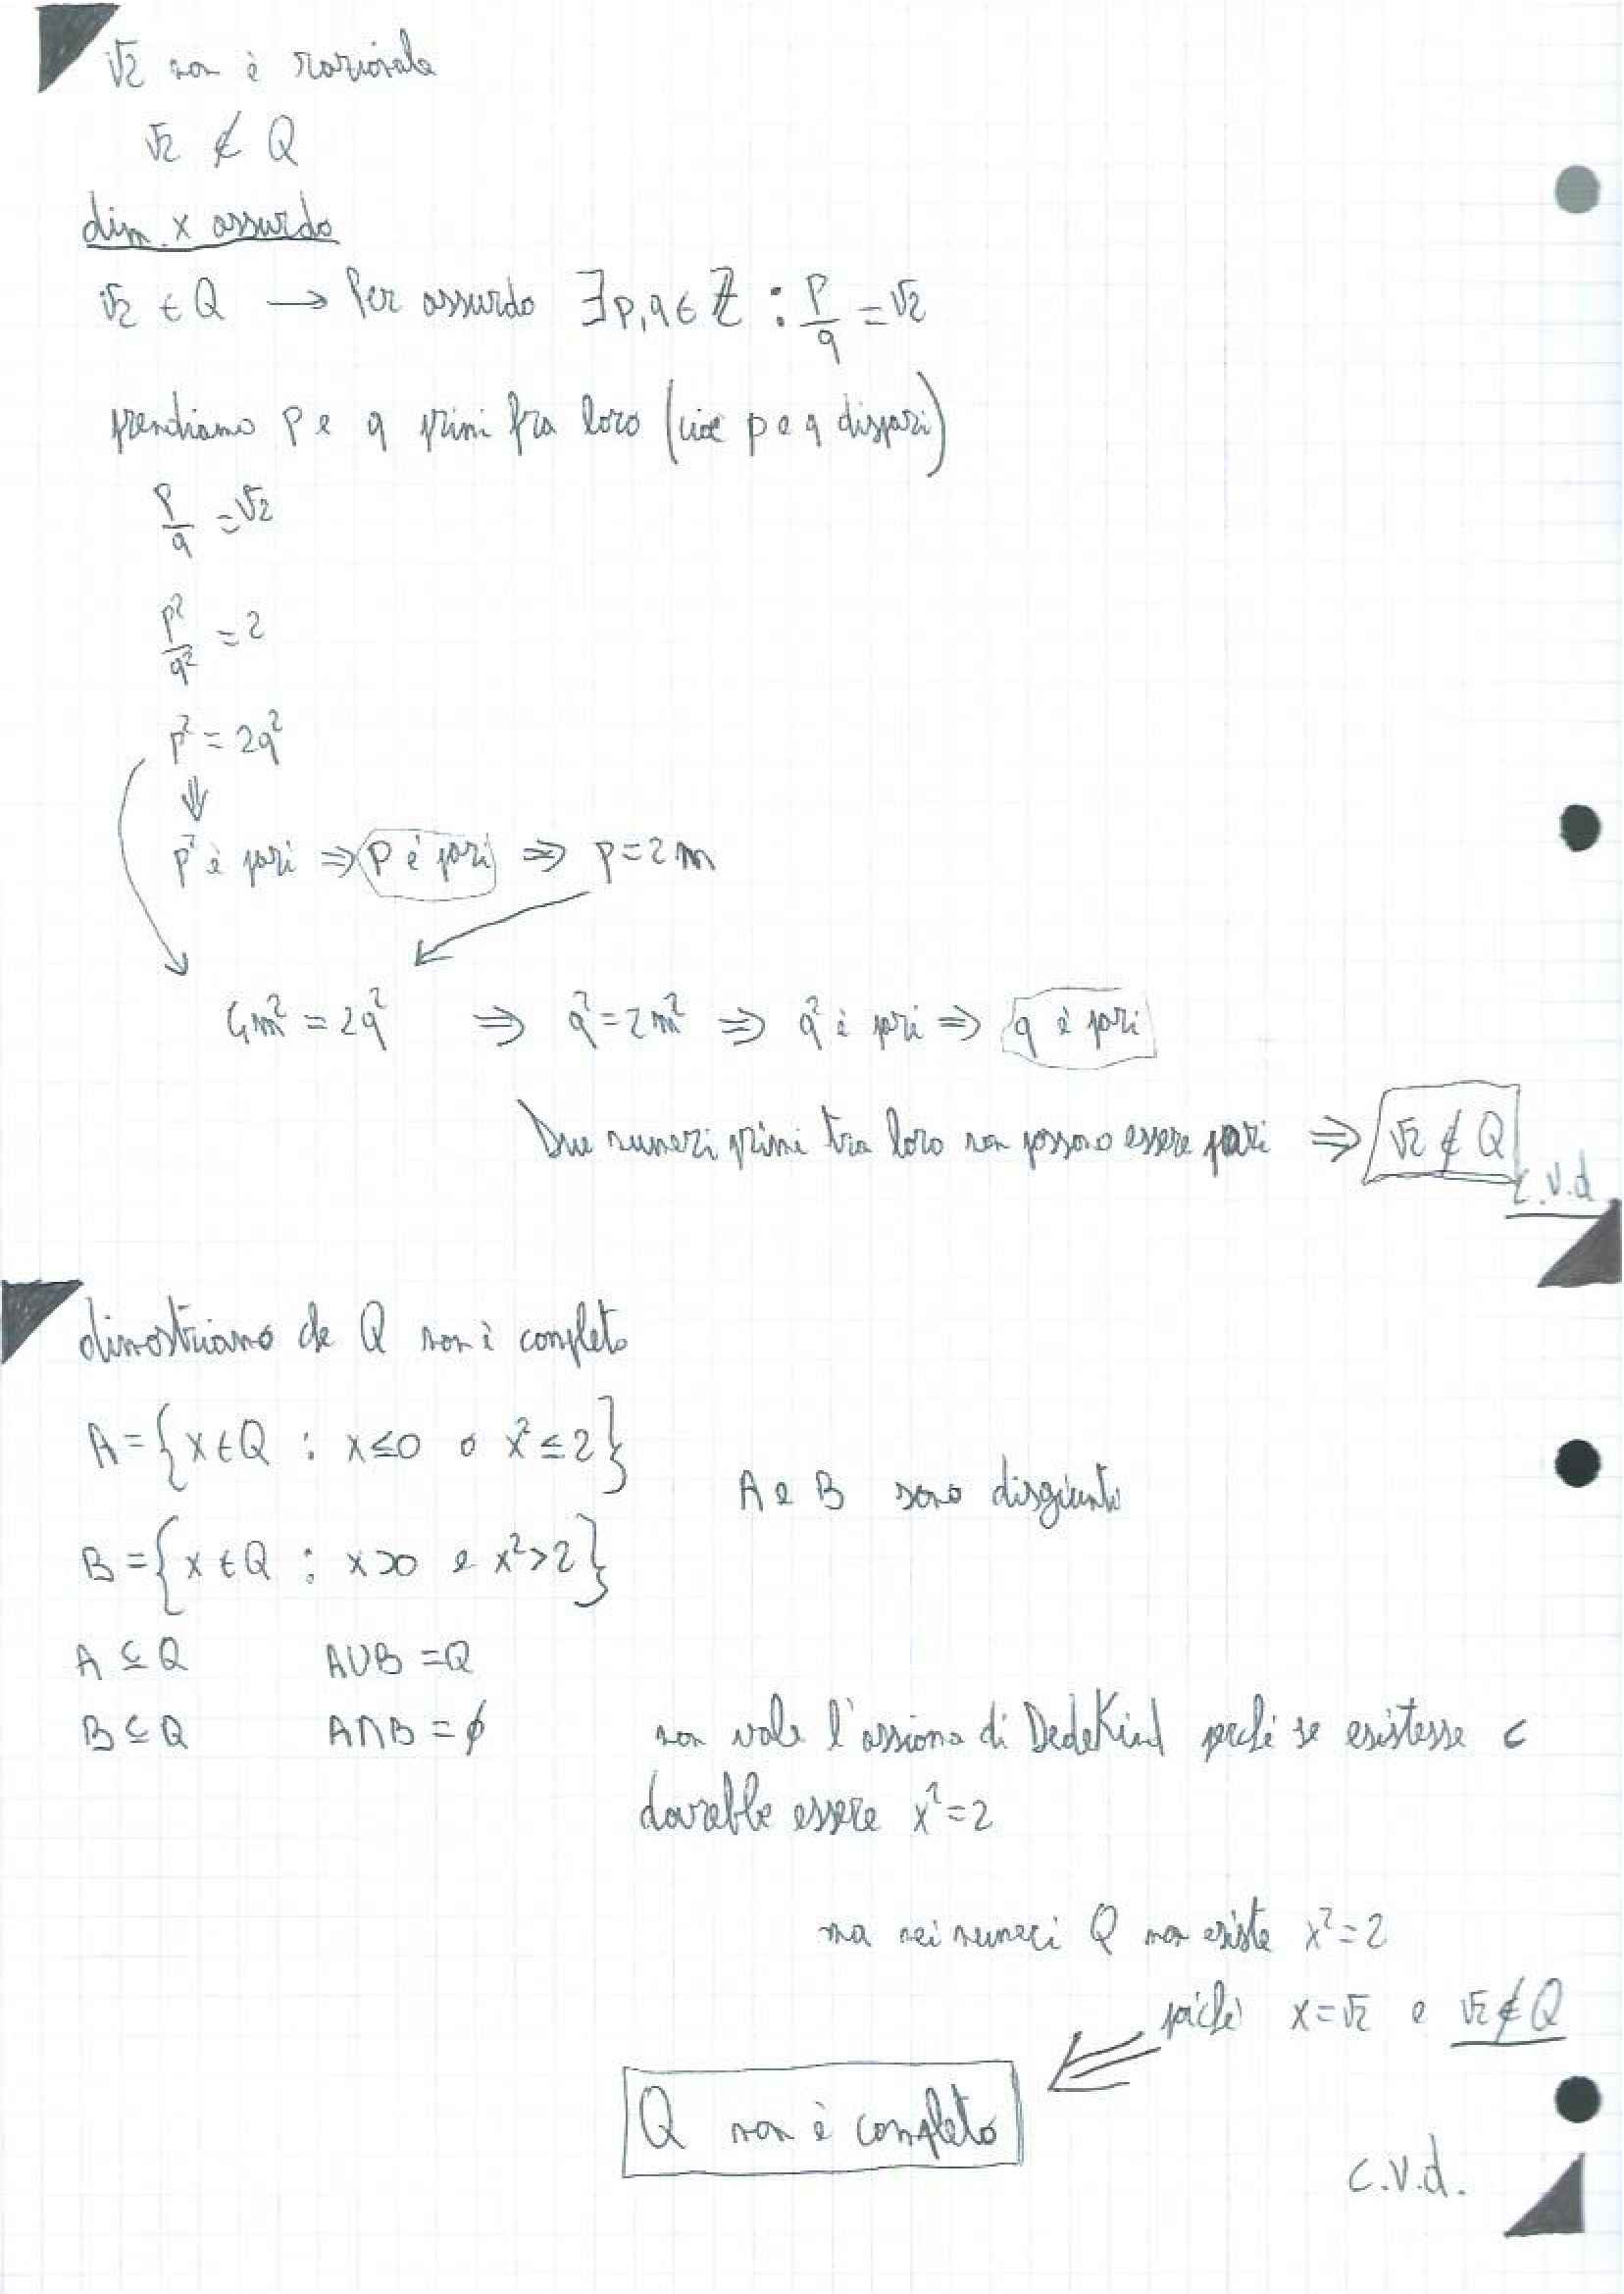 √2 non è razionale
√2 ∉ Q
dim. x assurdo
√2 ∈ Q → Per assurdo ∃p,q ∈ Z : p/q = √2
prendiamo p e q primi fra loro (cioè p e q dispari)
p/q = √2
p²/q² = 2
p² = 2q²
⇓
p² è pari ⇒ p è pari ⇒ p = 2m
4m² = 2q² ⇒ q² = 2m² ⇒ q² è pari ⇒ q è pari
Due numeri primi tra loro non possono essere pari ⇒ √2 ∉ Q
c.v.d.
dimostriamo che Q non è completo
A = {x ∈ Q : x ≤ 0 o x² ≤ 2}
A e B sono disgiunti
B = {x ∈ Q : x > 0 e x² > 2}
A ⊆ Q A∪B = Q
B ⊆ Q A∩B = ∅
non vale l'assioma di Dedekind perché se esistesse c
dovrebbe essere x² = 2
ma nei numeri Q non esiste x² = 2
poiché x = √2 e √2 ∉ Q
Q non è completo
c.v.d.